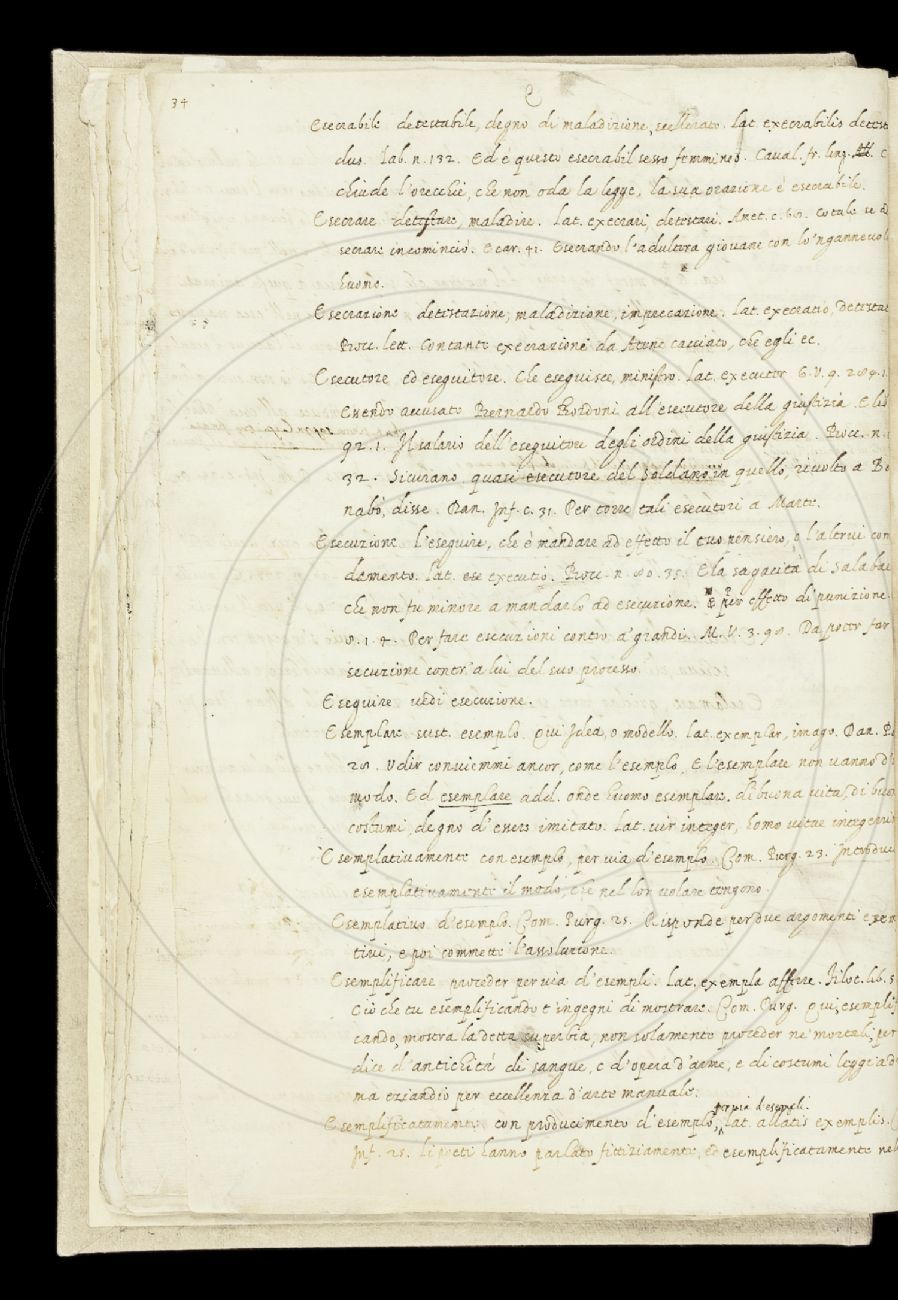 34
E
Esecrabile detestabile, degno di maladizione, scellerato. Lat. execrabilis detest
dus. Lab. n. 132. Ed è questo esecrabil sesso femmineo. Caval. fr. ling.
chiude l'orecchie, che non oda la legge, la sua orazione è esecrabile.
Esecrare detestare, maladire. Lat. execrari, detestari. Amet. c. 60. Cotale se
secrare incominciò. E car. 41. Esecrando l'adultera giovane con lo'ngannevol
huomo.
Esecrazione detestazione, maladizione, impreccazione. Lat. execratio, detesta
Bocc. lett. Con tante execrazione da Atene cacciato, che egli ec.
Esecutore ed eseguitore. Che eseguisce, ministro. Lat. executor G. V. 9. 284. 1.
Essendo accusato Bernardo Bordoni all'esecutore della giustizia. E lib
92. 1. Il salario dell'eseguitore degli ordini della giustizia. Bocc. n.
32. Sicurano, quasi esecutore del Soldano in quello, rivolto a Be
nabò, disse. Dan. Inf. c. 31. Per torre tali esecutori a Marte.
Esecuzione l'eseguire, che è mandare ad effetto il tuo pensiero, o l'altrui com
damento. Lat. ese executio. Bocc. n. 80. 35. E la sagacità di Salabae
che non fu minore a mandarlo ad esecuzione. E per effetto di punizione.
8. 1. 4. Per fare esecuzioni contro a' grandi. M. V. 3. 98. Da poter far
secuzione contr'a lui del suo processo.
Eseguire vedi esecuzione.
Esemplare sust. esemplo. Qui Idea, o modello. Lat. exemplar, imago. Dan. Pa
28. Udir conviemmi ancor, come l'esemplo, E l'esemplare non vanno d'
modo. Ed esemplare add. onde huomo esemplare. di buona vita, di buon
costumi, degno d'essere imitato. Lat. vir integer, homo vitae integerri
Esemplativamente con esemplo, per via d'esemplo. Com. Purg. 23. Introduce
esemplativamente il modo, che nel lor volare tengono.
Esemplativo d'esemplo. Com. Purg. 25. Risponde per due argomenti esem
tivi, e poi commette l'assoluzione.
Esemplificare proceder per via d'esempli. Lat. exempla afferre. Filoc. lib. 5
Ciò che tu esemplificando t'ingegni di mostrare. Com. Purg. Qui, esemplifi
cando, mostra la detta superbia, non solamente proceder ne' mortali, per
dice d'antichità di sangue, e d'opera d'arme, e di costumi leggiad
ma eziandio per eccellenza d'arte manuale.
per via d'esempli.
Esemplificatamente con producimento d'esemplo, Lat. allatis exemplis.
Inf. 25. Li poeti hanno parlato fittiziamente, ed esemplificatamente nel